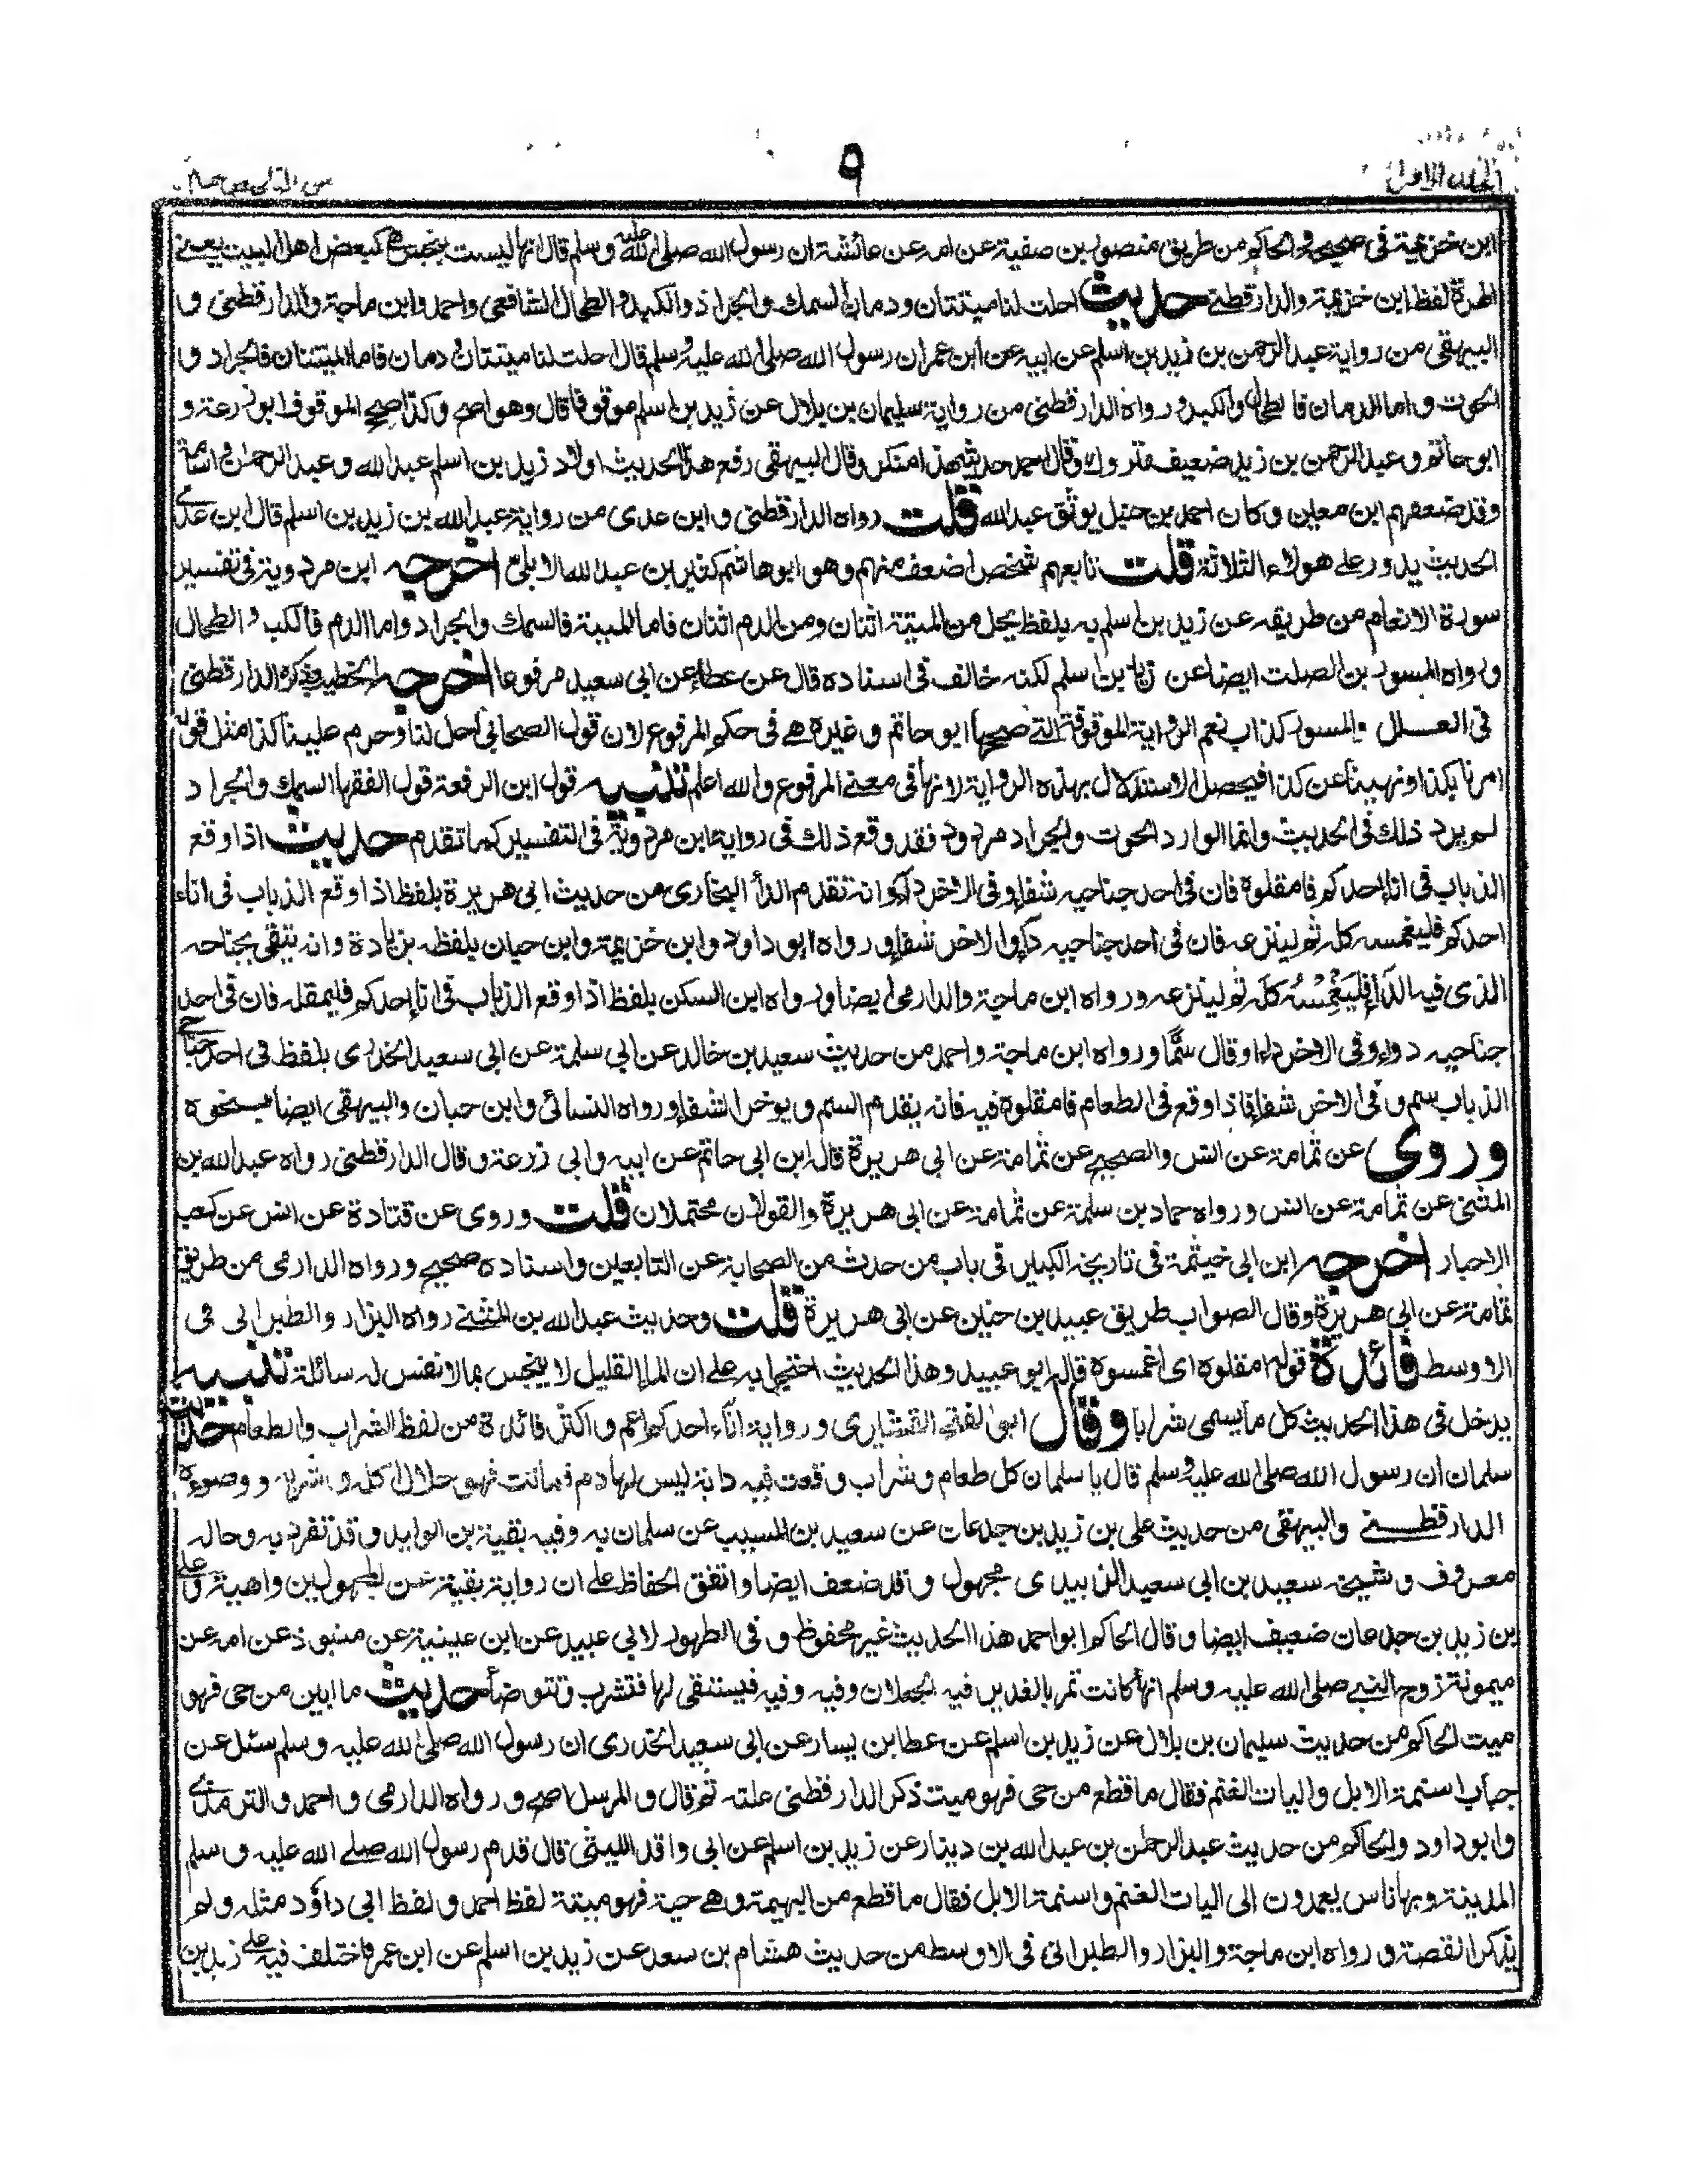 المجلد الاول
٩
من التلخيص
ابن خزيمة فى صحيحه والحاكم من طريق منصور بن صفية عن امه عن عائشة ان رسول الله صلى الله عليه وسلم قال انها ليست بنجس هى كبعض اهل البيت يعنى
الهرة لفظ ابن خزيمة والدارقطنى حديث احلت لنا ميتتان ودمان السمك والجراد والكبد والطحال الشافعى واحمد وابن ماجة والدارقطنى و
البيهقى من رواية عبد الرحمن بن زيد بن اسلم عن ابيه عن ابن عمر ان رسول الله صلى الله عليه وسلم قال احلت لنا ميتتان ودمان فاما الميتتان فالجراد و
الحوت واما الدمان فالطحال والكبد ورواه الدارقطنى من رواية سليمان بن بلال عن زيد بن اسلم موقوفا قال وهو اصح وكذا صحح الموقوف ابو زرعة و
ابو حاتم وعبد الرحمن بن زيد ضعيف متروك وقال احمد حديثه هذا منكر وقال البيهقى رفع هذا الحديث اولاد زيد بن اسلم عبد الله وعبد الرحمن واسامة
وقد ضعفهم ابن معين وكان احمد بن حنبل يوثق عبد الله قلت رواه الدارقطنى وابن عدى من رواية عبد الله بن زيد بن اسلم قال ابن عدى
الحديث يدور على هولاء الثلاثة قلت تابعهم شخص اضعف منهم وهو ابو هاشم كثير بن عبد الله الابلى اخرجه ابن مردوية فى تفسير
سورة الانعام من طريقه عن زيد بن اسلم به بلفظ يحل من الميتة اثنان ومن الدم اثنان فاما الميتة فالسمك والجراد واما الدم فالكبد والطحال
ورواه المسور بن الصلت ايضا عن زيد بن اسلم لكنه خالف فى اسناده قال عن عطاء عن ابى سعيد مرفوعا اخرجه الخطيب وذكره الدارقطنى
فى العلل والمسور كذاب نعم الرواية الموقوفة التى صححها ابو حاتم وغيره هى فى حكم المرفوع لان قول الصحابى احل لنا وحرم علينا كذا مثل قوله
امرنا بكذا ونهينا عن كذا فيحصل الاستدلال بهذه الرواية لانها فى معنى المرفوع والله اعلم تنبيه قول ابن الرفعة قول الفقها السمك والجراد
لم يرد ذلك فى الحديث وانما الوارد الحوت والجراد مردود فقد وقع ذلك فى رواية ابن مردوية فى التفسير كما تقدم حديث اذا وقع
الذباب فى اناء احدكم فامقلوه فان فى احد جناحيه شفاء وفى الاخر داء وانه تقدم الدأ البخارى من حديث ابى هريرة بلفظ اذا وقع الذباب فى اناء
احدكم فليغمسه كله ثم لينزعه فان فى احد جناحيه داء والاخر شفاء ورواه ابو داود وابن خزيمة وابن حبان بلفظه بزيادة وانه يتقى بجناحه
الذى فيه الدأ فليغمسه كله ثم لينزعه ورواه ابن ماجة والدارمى ايضا ورواه ابن السكن بلفظ اذا وقع الذباب فى اناء احدكم فليمقله فان فى احد
جناحيه دواء وفى الاخر داء او قال سمًّا ورواه ابن ماجة واحمد من حديث سعيد بن خالد عن ابى سلمة عن ابى سعيد الخدرى بلفظ فى احد جناحى
الذباب سم وفى الاخر شفاء فاذا وقع فى الطعام فامقلوه فيه فانه يقدم السم ويوخر الشفاء ورواه النسائى وابن حبان والبيهقى ايضا بنحوه
وروى عن ثمامة عن انس والصحيح عن ثمامة عن ابى هريرة قاله ابن ابى حاتم عن ابيه وابى زرعة وقال الدارقطنى رواه عبد الله بن
المثنى عن ثمامة عن انس ورواه حماد بن سلمة عن ثمامة عن ابى هريرة والقولان محتملان قلت وروى عن قتادة عن انس عن كعب
الاحبار اخرجه ابن ابى خيثمة فى تاريخه الكبير فى باب من حدث من الصحابة عن التابعين واسناده صحيح ورواه الدارمى من طريق
ثمامة عن ابى هريرة وقال الصواب طريق عبيد بن حنين عن ابى هريرة قلت وحديث عبد الله بن المثنى رواه البزار والطبرانى فى
الاوسط فائدة قوله امقلوه اى اغمسوه قاله ابو عبيد وهذا الحديث احتج به على ان الماء القليل لا ينجس بما لا نفس له سائلة تنبيه
يدخل فى هذا الحديث كل ما يسمى شرابا وقال ابو الفتح القشيرى ورواية اناء احدكم اعم واكثر فائدة من لفظ الشراب والطعام حديث
سلمان ان رسول الله صلى الله عليه وسلم قال يا سلمان كل طعام وشراب وقعت فيه دابة ليس لها دم فماتت فهو حلال اكله وشربه ووضوءه
الدارقطنى والبيهقى من حديث على بن زيد بن جدعان عن سعيد بن المسيب عن سلمان به وفيه بقية بن الوليد وقد تفرد به وحاله
معروف وشيخه سعيد بن ابى سعيد الزبيدى مجهول وقد ضعف ايضا واتفق الحفاظ على ان رواية بقية عن المجهولين واهية وعلى
بن زيد بن جدعان ضعيف ايضا وقال الحاكم ابو احمد هذا الحديث غير محفوظ وفى الطهور لابى عبيد عن ابن عيينة عن منبوذ عن امه عن
ميمونة زوج النبى صلى الله عليه وسلم انها كانت تمر بالغدير فيه الجعلان وفيه وفيه فيستقى لها فتشرب وتتوضأ حديث ما ابين من حى فهو
ميت الحاكم من حديث سليمان بن بلال عن زيد بن اسلم عن عطا بن يسار عن ابى سعيد الخدرى ان رسول الله صلى الله عليه وسلم سئل عن
جباب اسنمة الابل واليات الغنم فقال ما قطع من حى فهو ميت ذكر الدارقطنى علته ثم قال والمرسل اصح ورواه الدارمى واحمد والترمذى
وابو داود والحاكم من حديث عبد الرحمن بن عبد الله بن دينار عن زيد بن اسلم عن ابى واقد الليثى قال قدم رسول الله صلى الله عليه وسلم
المدينة وبها ناس يعمدون الى اليات الغنم واسنمة الابل فقال ما قطع من البهيمة وهى حية فهو ميتة لفظ احمد ولفظ ابى داؤد مثله ولم
يذكر القصة ورواه ابن ماجة والبزار والطبرانى فى الاوسط من حديث هشام بن سعد عن زيد بن اسلم عن ابن عمر فاختلف فيه على زيد بن